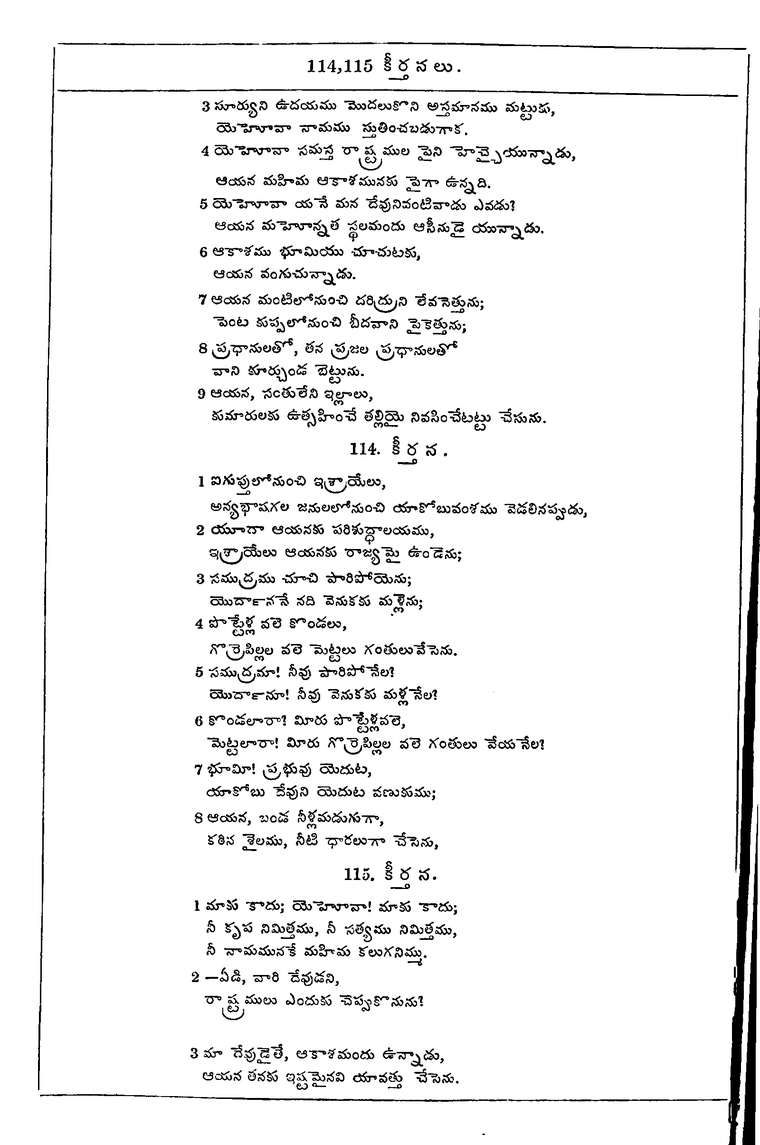 114,115 కీర్తనలు.
3 సూర్యుని ఉదయము మొదలుకొని అస్తమానము మట్టుకు,
యెహోవా నామము స్తుతించబడుగాక.
4 యెహోవా సమస్త రాష్ట్రముల పైని హెచ్చైయున్నాడు,
ఆయన మహిమ ఆకాశమునకు పైగా ఉన్నది.
5 యెహోవా యనే మన దేవునివంటివాడు ఎవడు?
ఆయన మహోన్నత స్థలమందు ఆసీనుడై యున్నాడు.
6 ఆకాశము భూమియు చూచుటకు,
ఆయన వంగుచున్నాడు.
7 ఆయన మంటిలోనుంచి దరిద్రుని లేవనెత్తును;
పెంట కుప్పలోనుంచి బీదవాని పైకెత్తును;
8 ప్రధానులతో, తన ప్రజల ప్రధానులతో
వాని కూర్చుండ బెట్టును.
9 ఆయన, సంతులేని ఇల్లాలు,
కుమారులకు ఉత్సహించే తల్లియై నివసించేటట్టు చేసును.
114. కీర్తన.
1 ఐగుప్తులోనుంచి ఇశ్రాయేలు,
అన్యభాషగల జనులలోనుంచి యాకోబువంశము వెడలినప్పుడు,
2 యూదా ఆయనకు పరిశుద్ధాలయము,
ఇశ్రాయేలు ఆయనకు రాజ్యమై ఉండెను;
3 సముద్రము చూచి పారిపోయెను;
యొర్దాననే నది వెనుకకు మళ్లెను;
4 పొట్టేళ్ల వలె కొండలు,
గొర్రెపిల్లల వలె మెట్టలు గంతులువేసెను.
5 సముద్రమా! నీవు పారిపోనేల?
యొర్దానూ! నీవు వెనుకకు మళ్లనేల?
6 కొండలారా? మీరు పొట్టేళ్లవలె,
మెట్టలారా! మీరు గొర్రెపిల్లల వలె గంతులు వేయనేల?
7 భూమీ! ప్రభువు యెదుట,
యాకోబు దేవుని యెదుట వణుకుము;
8 ఆయన, బండ నీళ్లమడుగుగా,
కఠిన శైలము, నీటి ధారలుగా చేసెను,
115. కీర్తన.
1 మాకు కాదు; యెహోవా! మాకు కాదు;
నీ కృప నిమిత్తము, నీ సత్యము నిమిత్తము,
నీ నామమునకే మహిమ కలుగనిమ్ము.
2 —ఏడి, వారి దేవుడని,
రాష్ట్రములు ఎందుకు చెప్పుకొనును?
3 మా దేవుడైతే, ఆకాశమందు ఉన్నాడు,
ఆయన తనకు ఇష్టమైనవి యావత్తు చేసెను.